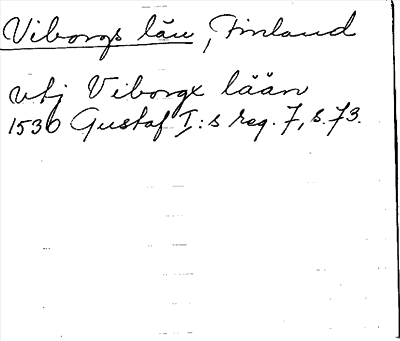 Viborgs län, Finland
vtj Viborgx lään
1530 Gustaf I:s reg. 7, s. 73.